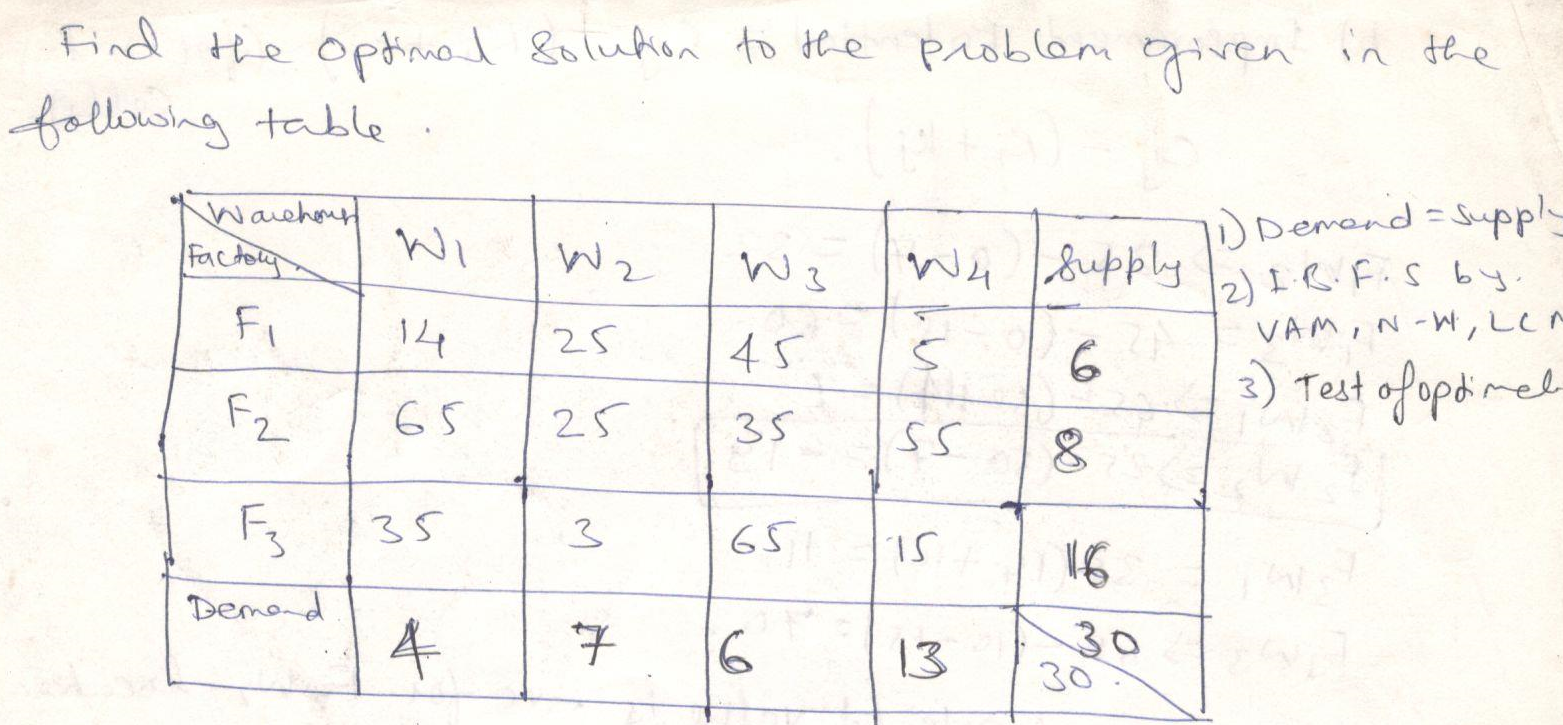 Find the optimal solution to the problem given in the
following table.
Warehouse
Factory
W1 W2 W3 W4 Supply
F1 14 25 45 5 6
F2 65 25 35 55 8
F3 35 3 65 15 16
Demand 4 7 6 13 30
30
1) Demand = Supply
2) I.B.F.S by.
VAM, N-W, LCM
3) Test of optimal